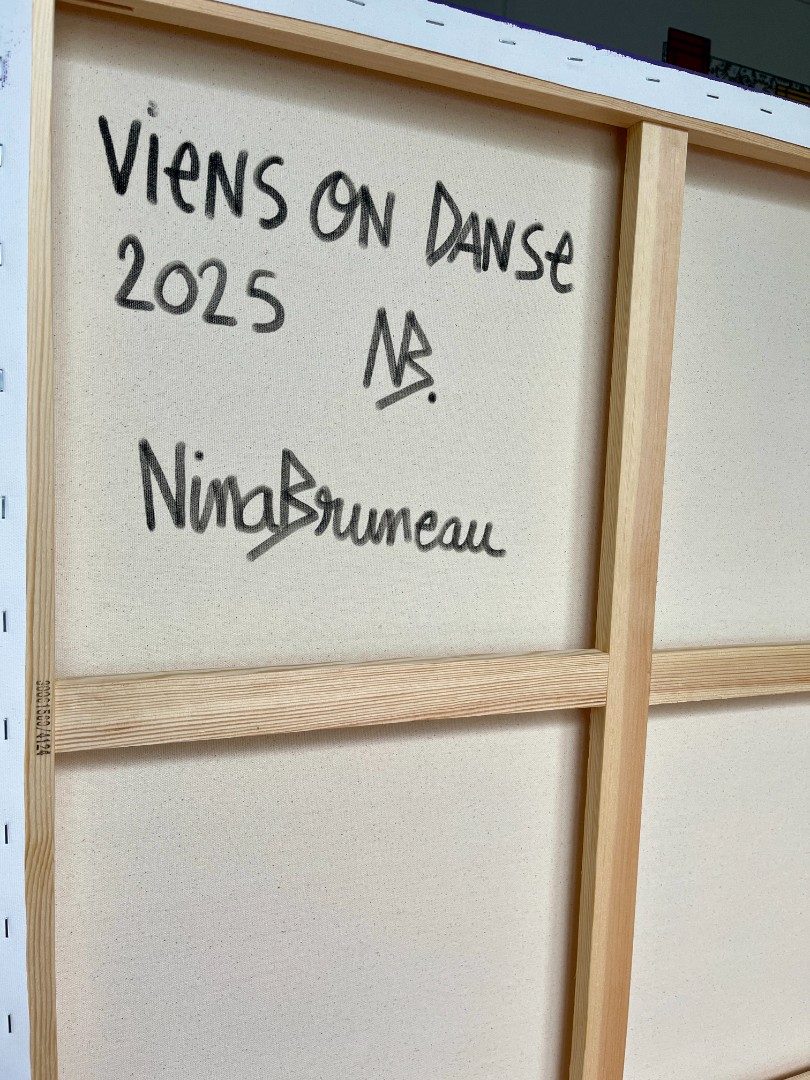 Viens ON DANSe
2025
NB.
NinaBruneau